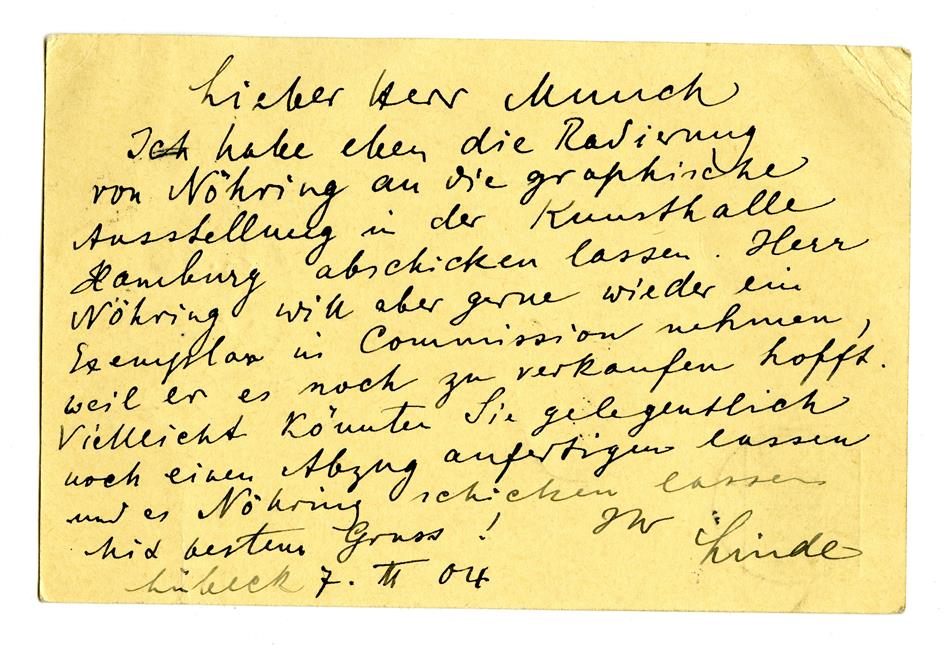 Lieber Herr Munch
Ich habe eben die Radierung
von Nöhring an die graphische
Ausstellung in der Kunsthalle
Hamburg abschicken lassen. Herr
Nöhring will aber gerne wieder ein
Exemplar in Commission nehmen,
weil er es noch zu verkaufen hofft.
Vielleicht könnten Sie gelegentlich
noch einen Abzug anfertigen lassen
und es Nöhring schicken lassen
Mit bestem Gruss! Ihr Linde
Lübeck 7. III 04